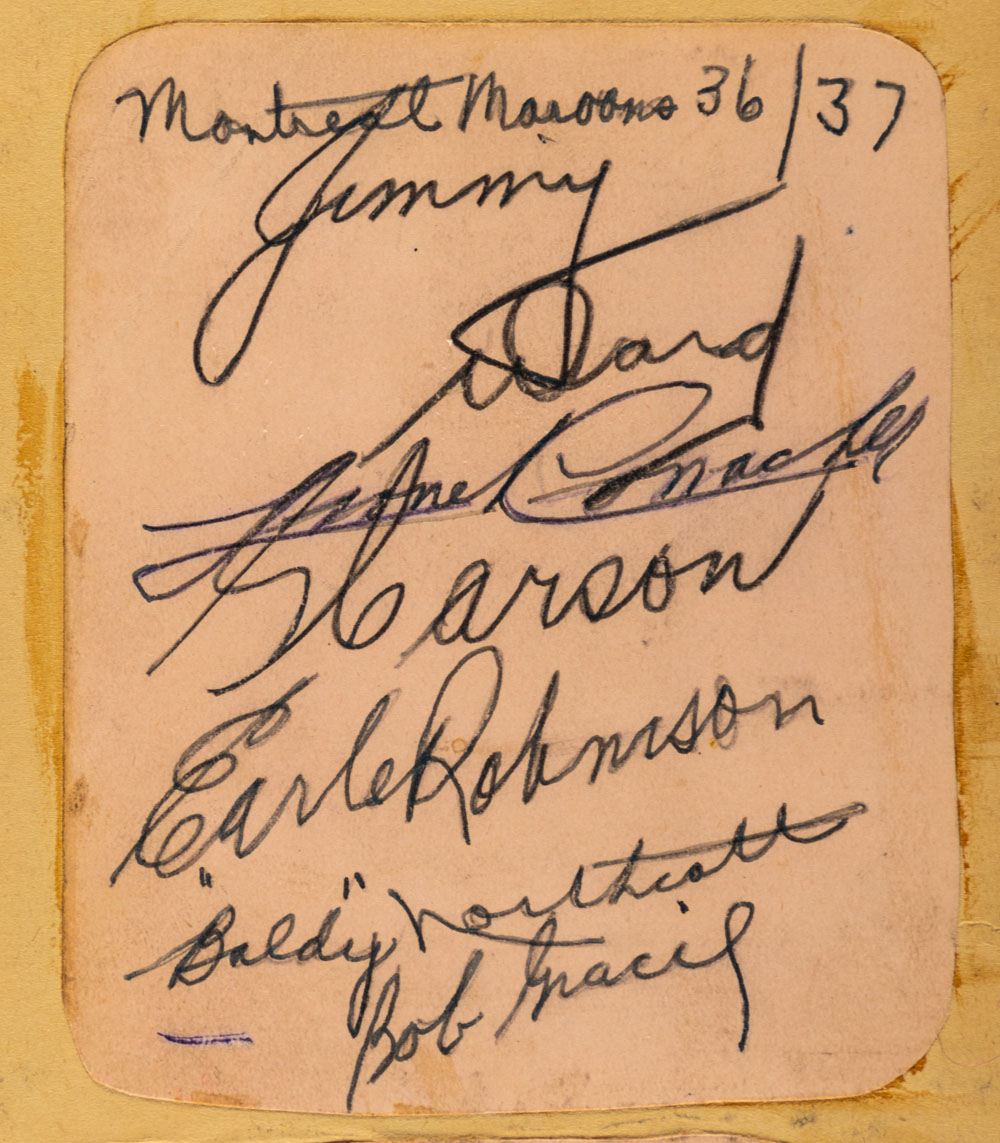 Montreal Maroons 36/37
Jimmy
Ward
Lionel Conacher
G Carson
Earl Robinson
"Baldy" Northcott
Bob Gracie